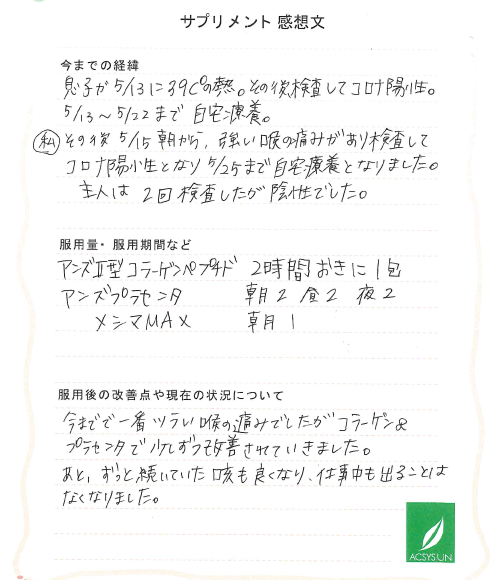 サプリメント 感想文
今までの経緯
息子が5/13に39℃の熱。その後検査してコロナ陽性。
5/13～5/22まで自宅療養。
私 その後5/15朝から、強い喉の痛みがあり検査して
コロナ陽性となり5/25まで自宅療養となりました。
主人は2回検査したが陰性でした。
服用量・服用期間など
アンズⅡ型コラーゲンペプチド 2時間おきに1包
アンズプラセンタ 朝2 昼2 夜2
メシマMAX 朝1
服用後の改善点や現在の状況について
今までで一番ツラい喉の痛みでしたがコラーゲン&
プラセンタで少しずつ改善されていきました。
あと、ずっと続いていた咳も良くなり、仕事中も出ることは
なくなりました。
ACSYSUN